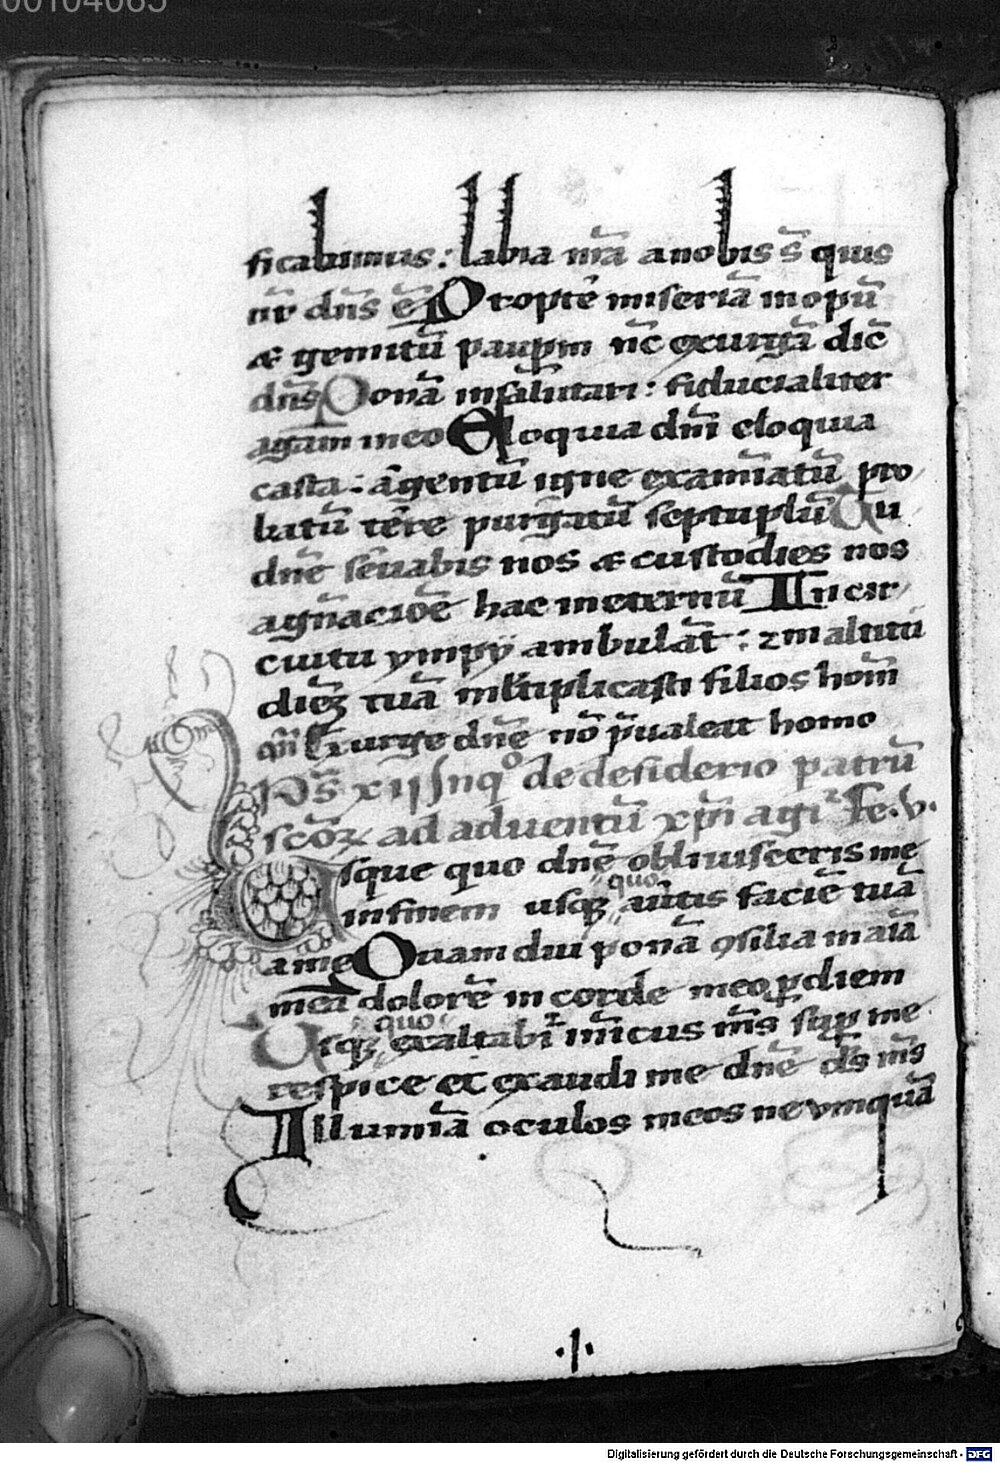 00104085
ficabimus: labia nr̄a a nobis s̄ quis
nr̄ dn̄s ē Propt̄e miseriā inopū
æ gemitū pauꝑum nc̄ exurgā dic̄
dn̄s Ponā in salutari: fiducialiter
agam in eo Eloquia dn̄i eloquia
casta: argentū igne examinatū pro
batū terre purgatū septuplū Tu
dn̄e servabis nos æ custodies nos
a gn̄acioē hac in eternū In cir
cuitu ympij ambulāt: ⁊ in altitū
dieꝫ tuā mltiplicasti filios hom̄
Exurge dn̄e nō p̄ualeat homo
Ps̄ xij In qͦ de desiderio patrū
scōꝝ ad aduentū xp̄i agiͬ Fe. v.
Usque quo dn̄e obliuisceris me
in finem usqꝫ quo au̅tis faciē tuā
a me Quam diu ponā ꝯsilia in aīa
mea dolorē in corde meo ꝑ diem
Usqꝫ quo exaltabiͬ inīcus m̄s suꝑ me
respice et exaudi me dn̄e ds̄ m̄s
Illumīa oculos meos ne vmquā
.I.
Digitalisierung gefördert durch die Deutsche Forschungsgemeinschaft - DFG